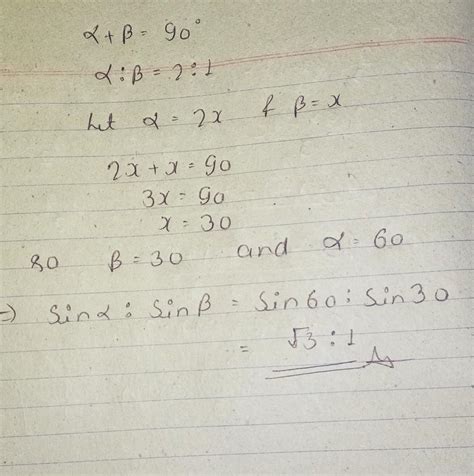 α + β = 90°
α : β = 2 : 1
Let α = 2x & β = x
2x + x = 90
3x = 90
x = 30
so β = 30 and α = 60
⇒ Sinα : Sinβ = Sin60 : Sin30
= √3 : 1